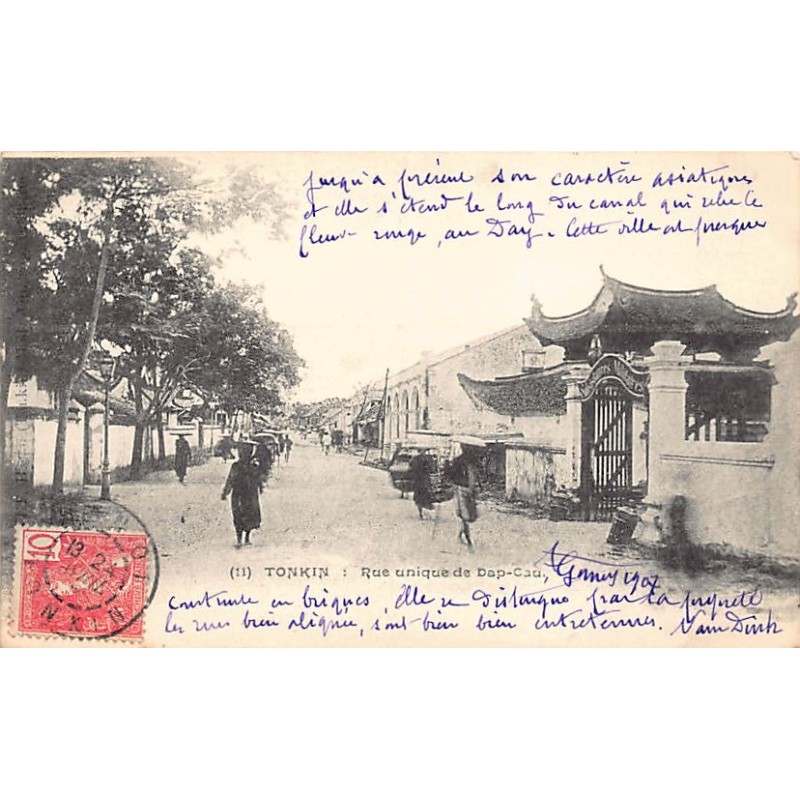 jusqu'a présent son caractère asiatique
et elle s'étend le long du canal qui relie le
fleuve rouge, au Day. Cette ville est presque
(11) TONKIN : Rue unique de Dap-Cau,
construite en briques, Elle se distingue par la propreté
les rues bien alignées, sont bien bien entretenues. Nam Dinh
10